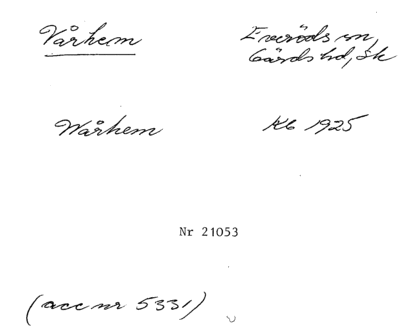 Vårhem
Everöds sn,
Gärds hd, Sk
Wårhem
Kb 1925
Nr 21053
(acc nr 5331)